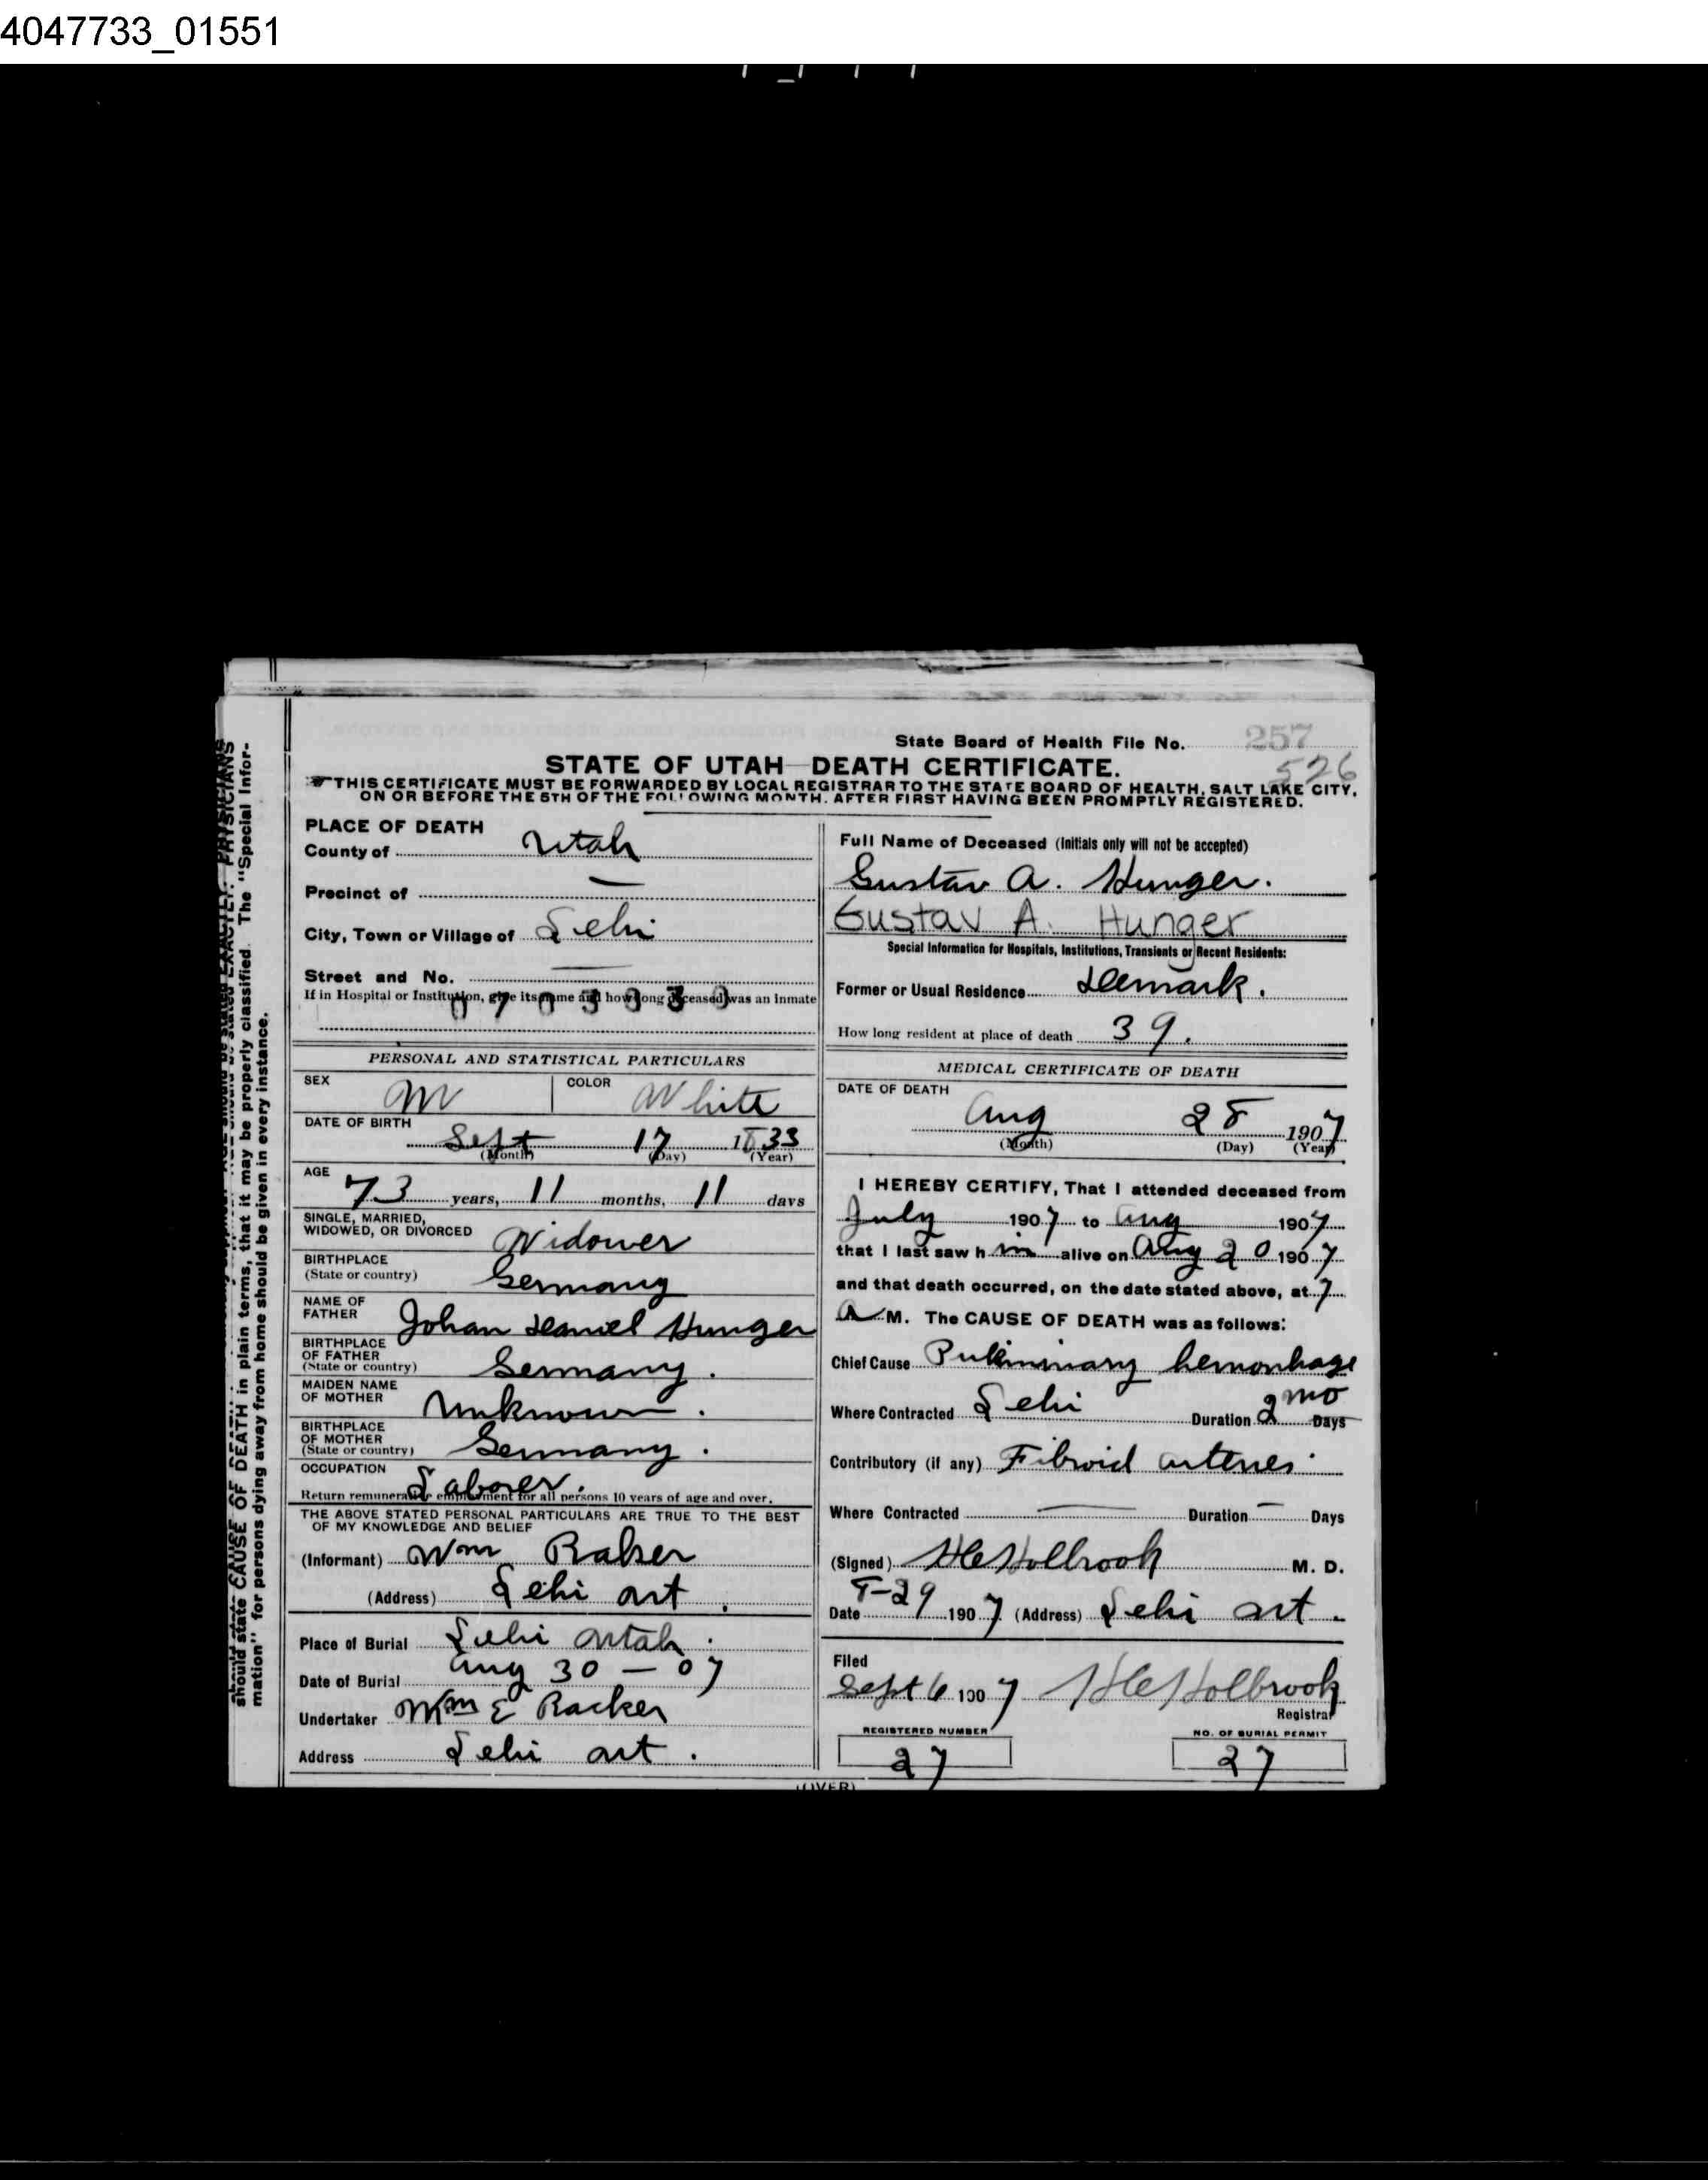 4047733_01551
State Board of Health File No. 257
526
STATE OF UTAH—DEATH CERTIFICATE.
THIS CERTIFICATE MUST BE FORWARDED BY LOCAL REGISTRAR TO THE STATE BOARD OF HEALTH, SALT LAKE CITY,
ON OR BEFORE THE 5TH OF THE FOLLOWING MONTH. AFTER FIRST HAVING BEEN PROMPTLY REGISTERED.
PLACE OF DEATH
County of Utah
Precinct of —
City, Town or Village of Lehi
Street and No. —
If in Hospital or Institution, give its name and how long deceased was an Inmate
0703030
PERSONAL AND STATISTICAL PARTICULARS
SEX M COLOR White
DATE OF BIRTH
Sept 17 1833
(Month) (Day) (Year)
AGE
73 years, 11 months, 11 days
SINGLE, MARRIED,
WIDOWED, OR DIVORCED Widower
BIRTHPLACE
(State or country) Germany
NAME OF
FATHER Johan Daniel Hunger
BIRTHPLACE
OF FATHER
(State or country) Germany.
MAIDEN NAME
OF MOTHER Unknown.
BIRTHPLACE
OF MOTHER
(State or country) Germany.
OCCUPATION Laborer.
Return remunerative employment for all persons 10 years of age and over.
THE ABOVE STATED PERSONAL PARTICULARS ARE TRUE TO THE BEST
OF MY KNOWLEDGE AND BELIEF
(Informant) Wm Raker
(Address) Lehi Ut.
Place of Burial Lehi Utah.
Date of Burial Aug 30 — 07
Undertaker Wm E Racker
Address Lehi Ut.
Full Name of Deceased (Initials only will not be accepted)
Gustav A. Hunger.
Gustav A. Hunger
Special Information for Hospitals, Institutions, Transients or Recent Residents:
Former or Usual Residence Demark.
How long resident at place of death 39.
MEDICAL CERTIFICATE OF DEATH
DATE OF DEATH
Aug 28 1907
(Month) (Day) (Year)
I HEREBY CERTIFY, That I attended deceased from
July 1907 to Aug 1907
that I last saw him alive on Aug 20 1907
and that death occurred, on the date stated above, at 7
A M. The CAUSE OF DEATH was as follows:
Chief Cause Pulminary hemorrhage
Where Contracted Lehi Duration 2 mo Days
Contributory (if any) Fibroid arteries.
Where Contracted — Duration — Days
(Signed) HC Holbrook M. D.
Date 8-29 1907 (Address) Lehi Ut.
Filed
Sept 6 1907 HC Holbrook
Registrar
REGISTERED NUMBER NO. OF BURIAL PERMIT
27 27
(OVER)
should state CAUSE OF DEATH in plain terms, that it may be properly classified. The "Special Infor-
mation" for persons dying away from home should be given in every instance.